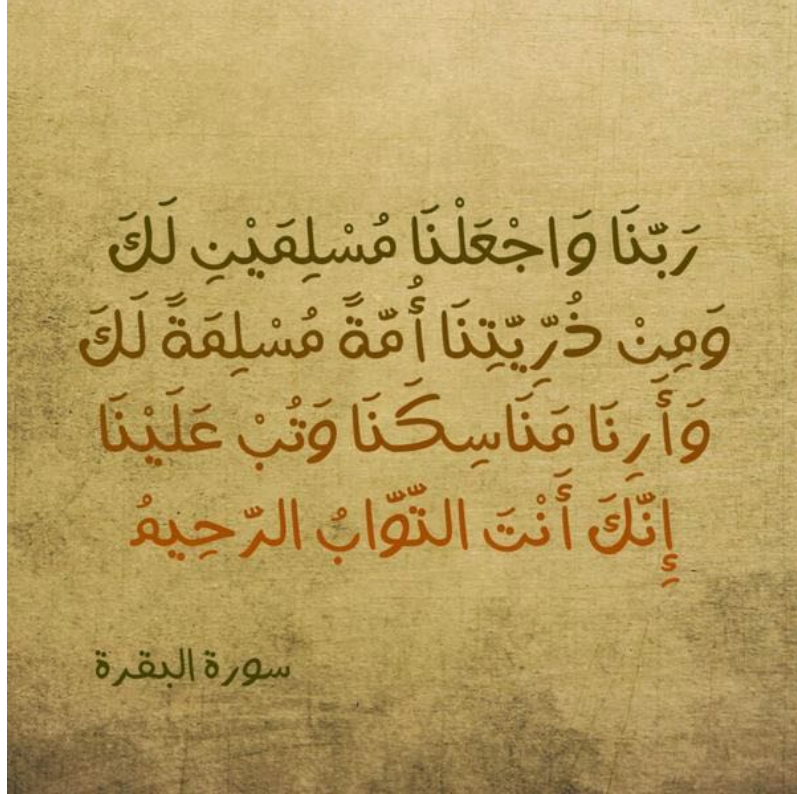 رَبَّنَا وَاجْعَلْنَا مُسْلِمَيْنِ لَكَ
وَمِنْ ذُرِّيَّتِنَا أُمَّةً مُسْلِمَةً لَكَ
وَأَرِنَا مَنَاسِكَنَا وَتُبْ عَلَيْنَا
إِنَّكَ أَنْتَ التَّوَّابُ الرَّحِيمُ
سورة البقرة